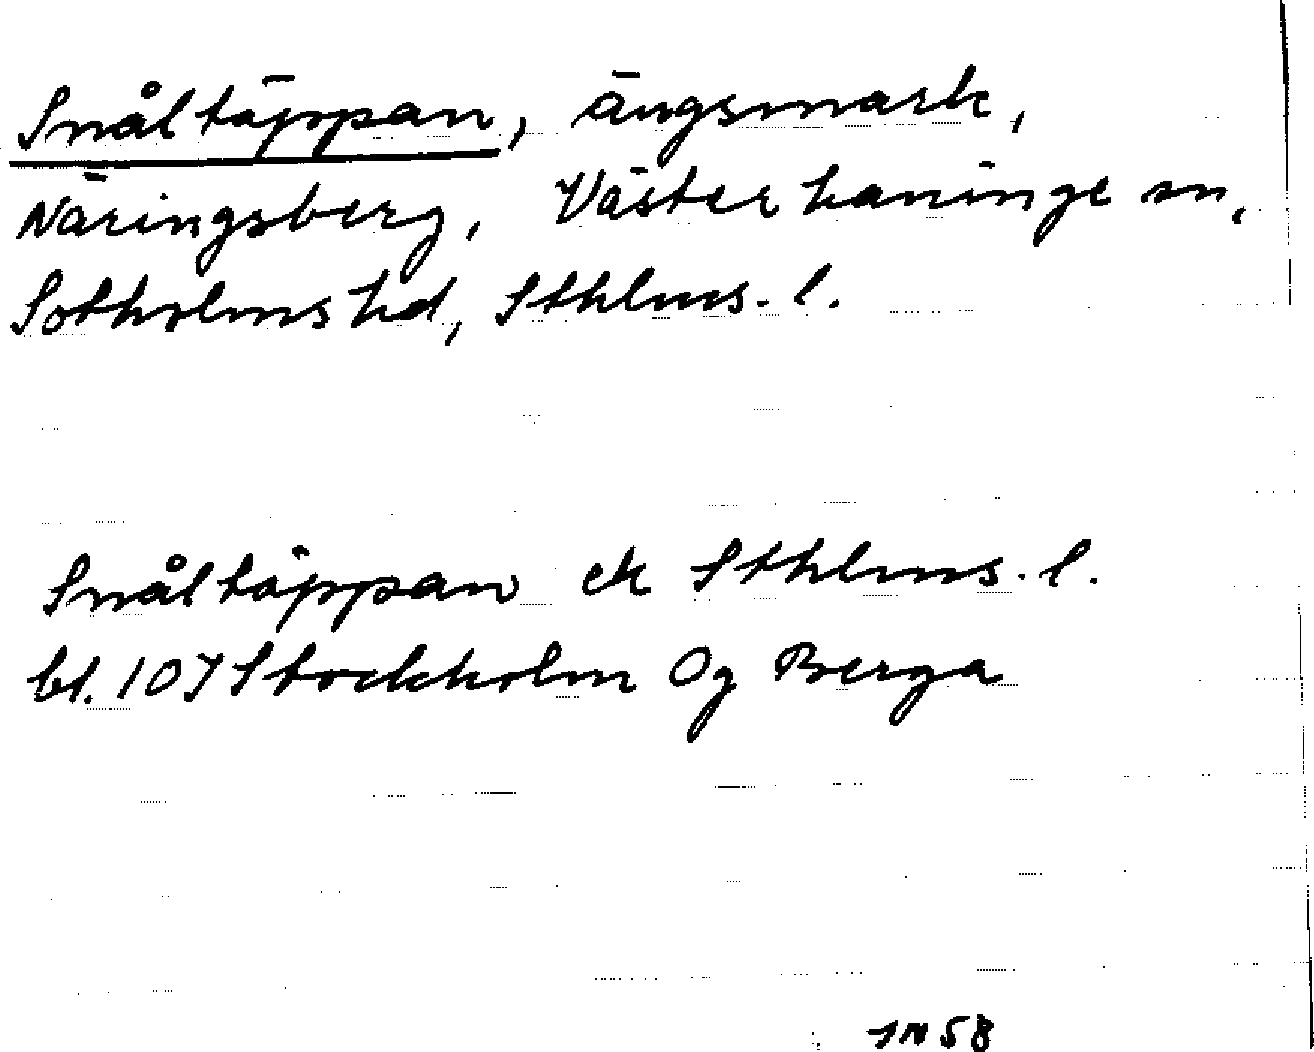 Snåltäppan, ängsmark,
Näringsberg, Västerhaninge sn,
Sotholms hd, Sthlms. l.
Snåltäppan ek Sthlms. l.
bl. 107 Stockholm Og Berga
JN 58